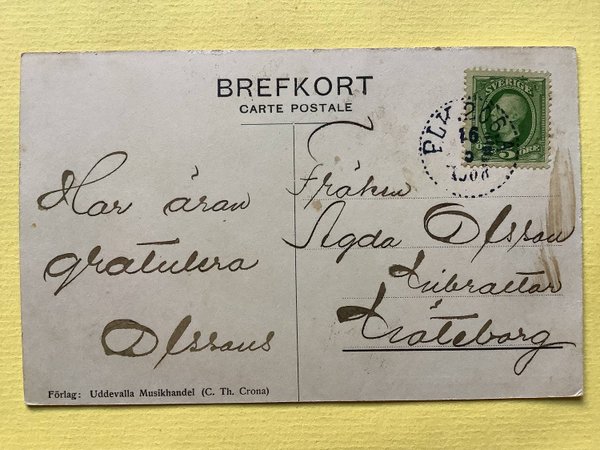 BREFKORT
CARTE POSTALE
SVERIGE
5 ÖRE
PLK 265
16
1908
Har äran
gratulera
Olssons
Fröken
Agda Olsson
Göteborg
Förlag: Uddevalla Musikhandel (C. Th. Crona)